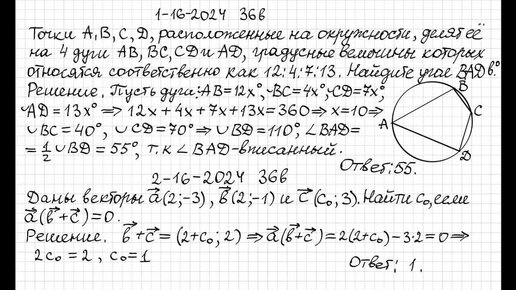 1-16-2024 36в
Точки A, B, C, D, расположенные на окружности, делят её
на 4 дуги AB, BC, CD и AD, градусные величины которых
относятся соответственно как 12:4:7:13. Найдите угол BAD в.°
Решение. Пусть дуга: ◡AB=12x°, ◡BC=4x°, ◡CD=7x°,
◡AD=13x° ⇒ 12x+4x+7x+13x=360 ⇒ x=10 ⇒
◡BC=40°, ◡CD=70° ⇒ ◡BD=110°, ∠BAD=
=1/2 ◡BD=55°, т.к ∠BAD-вписанный.
Ответ: 55.
B
C
A
D
2-16-2024 36в
Даны векторы a⃗(2;-3), b⃗(2;-1) и c⃗(c₀; 3). Найти c₀, если
a⃗(b⃗+c⃗)=0.
Решение. b⃗+c⃗=(2+c₀; 2) ⇒ a⃗(b⃗+c⃗)=2(2+c₀)-3·2=0 ⇒
2c₀=2, c₀=1
Ответ: 1.